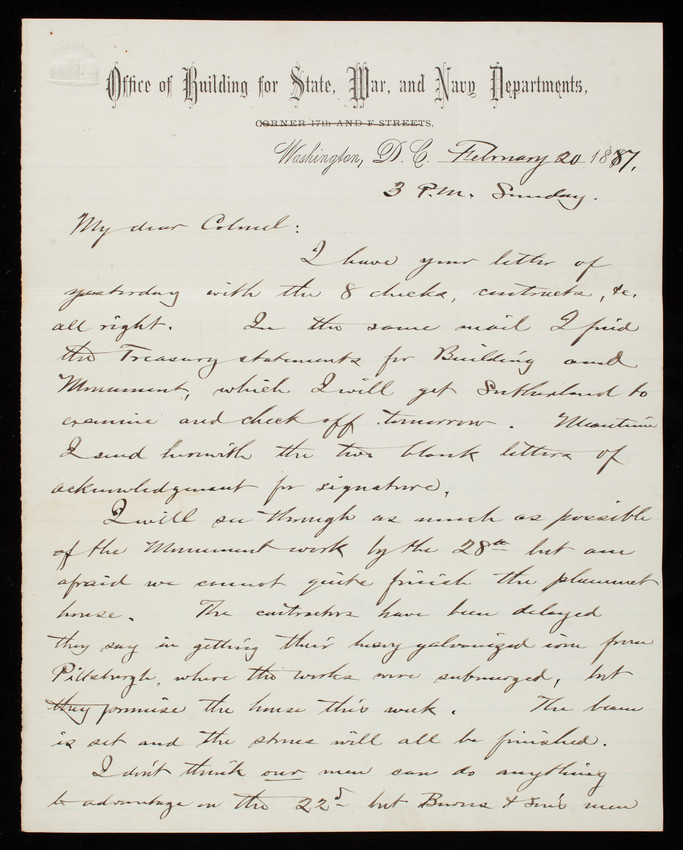 Office of Building for State, War, and Navy Departments,
CORNER 17th AND F STREETS.
Washington, D. C. February 20 1887,
3 P.M. Sunday.
My dear Colonel:
I have your letter of
yesterday with the 8 checks, contracts, &c.
all right. In the same mail I find
the Treasury statements for Building and
Monument, which I will get Sutherland to
examine and check off tomorrow. Meantime
I send herewith the two blank letters of
acknowledgement for signature.
I will see through as much as possible
of the Monument work by the 28th but am
afraid we cannot quite finish the plummet
house. The contractors have been delayed
they say in getting their heavy galvanized iron from
Pittsburgh, where the works were submerged, but
they promise the house this week. The beam
is set and the stones will all be finished.
I don't think our men can do anything
to advantage on the 22d but Burns & Son's men